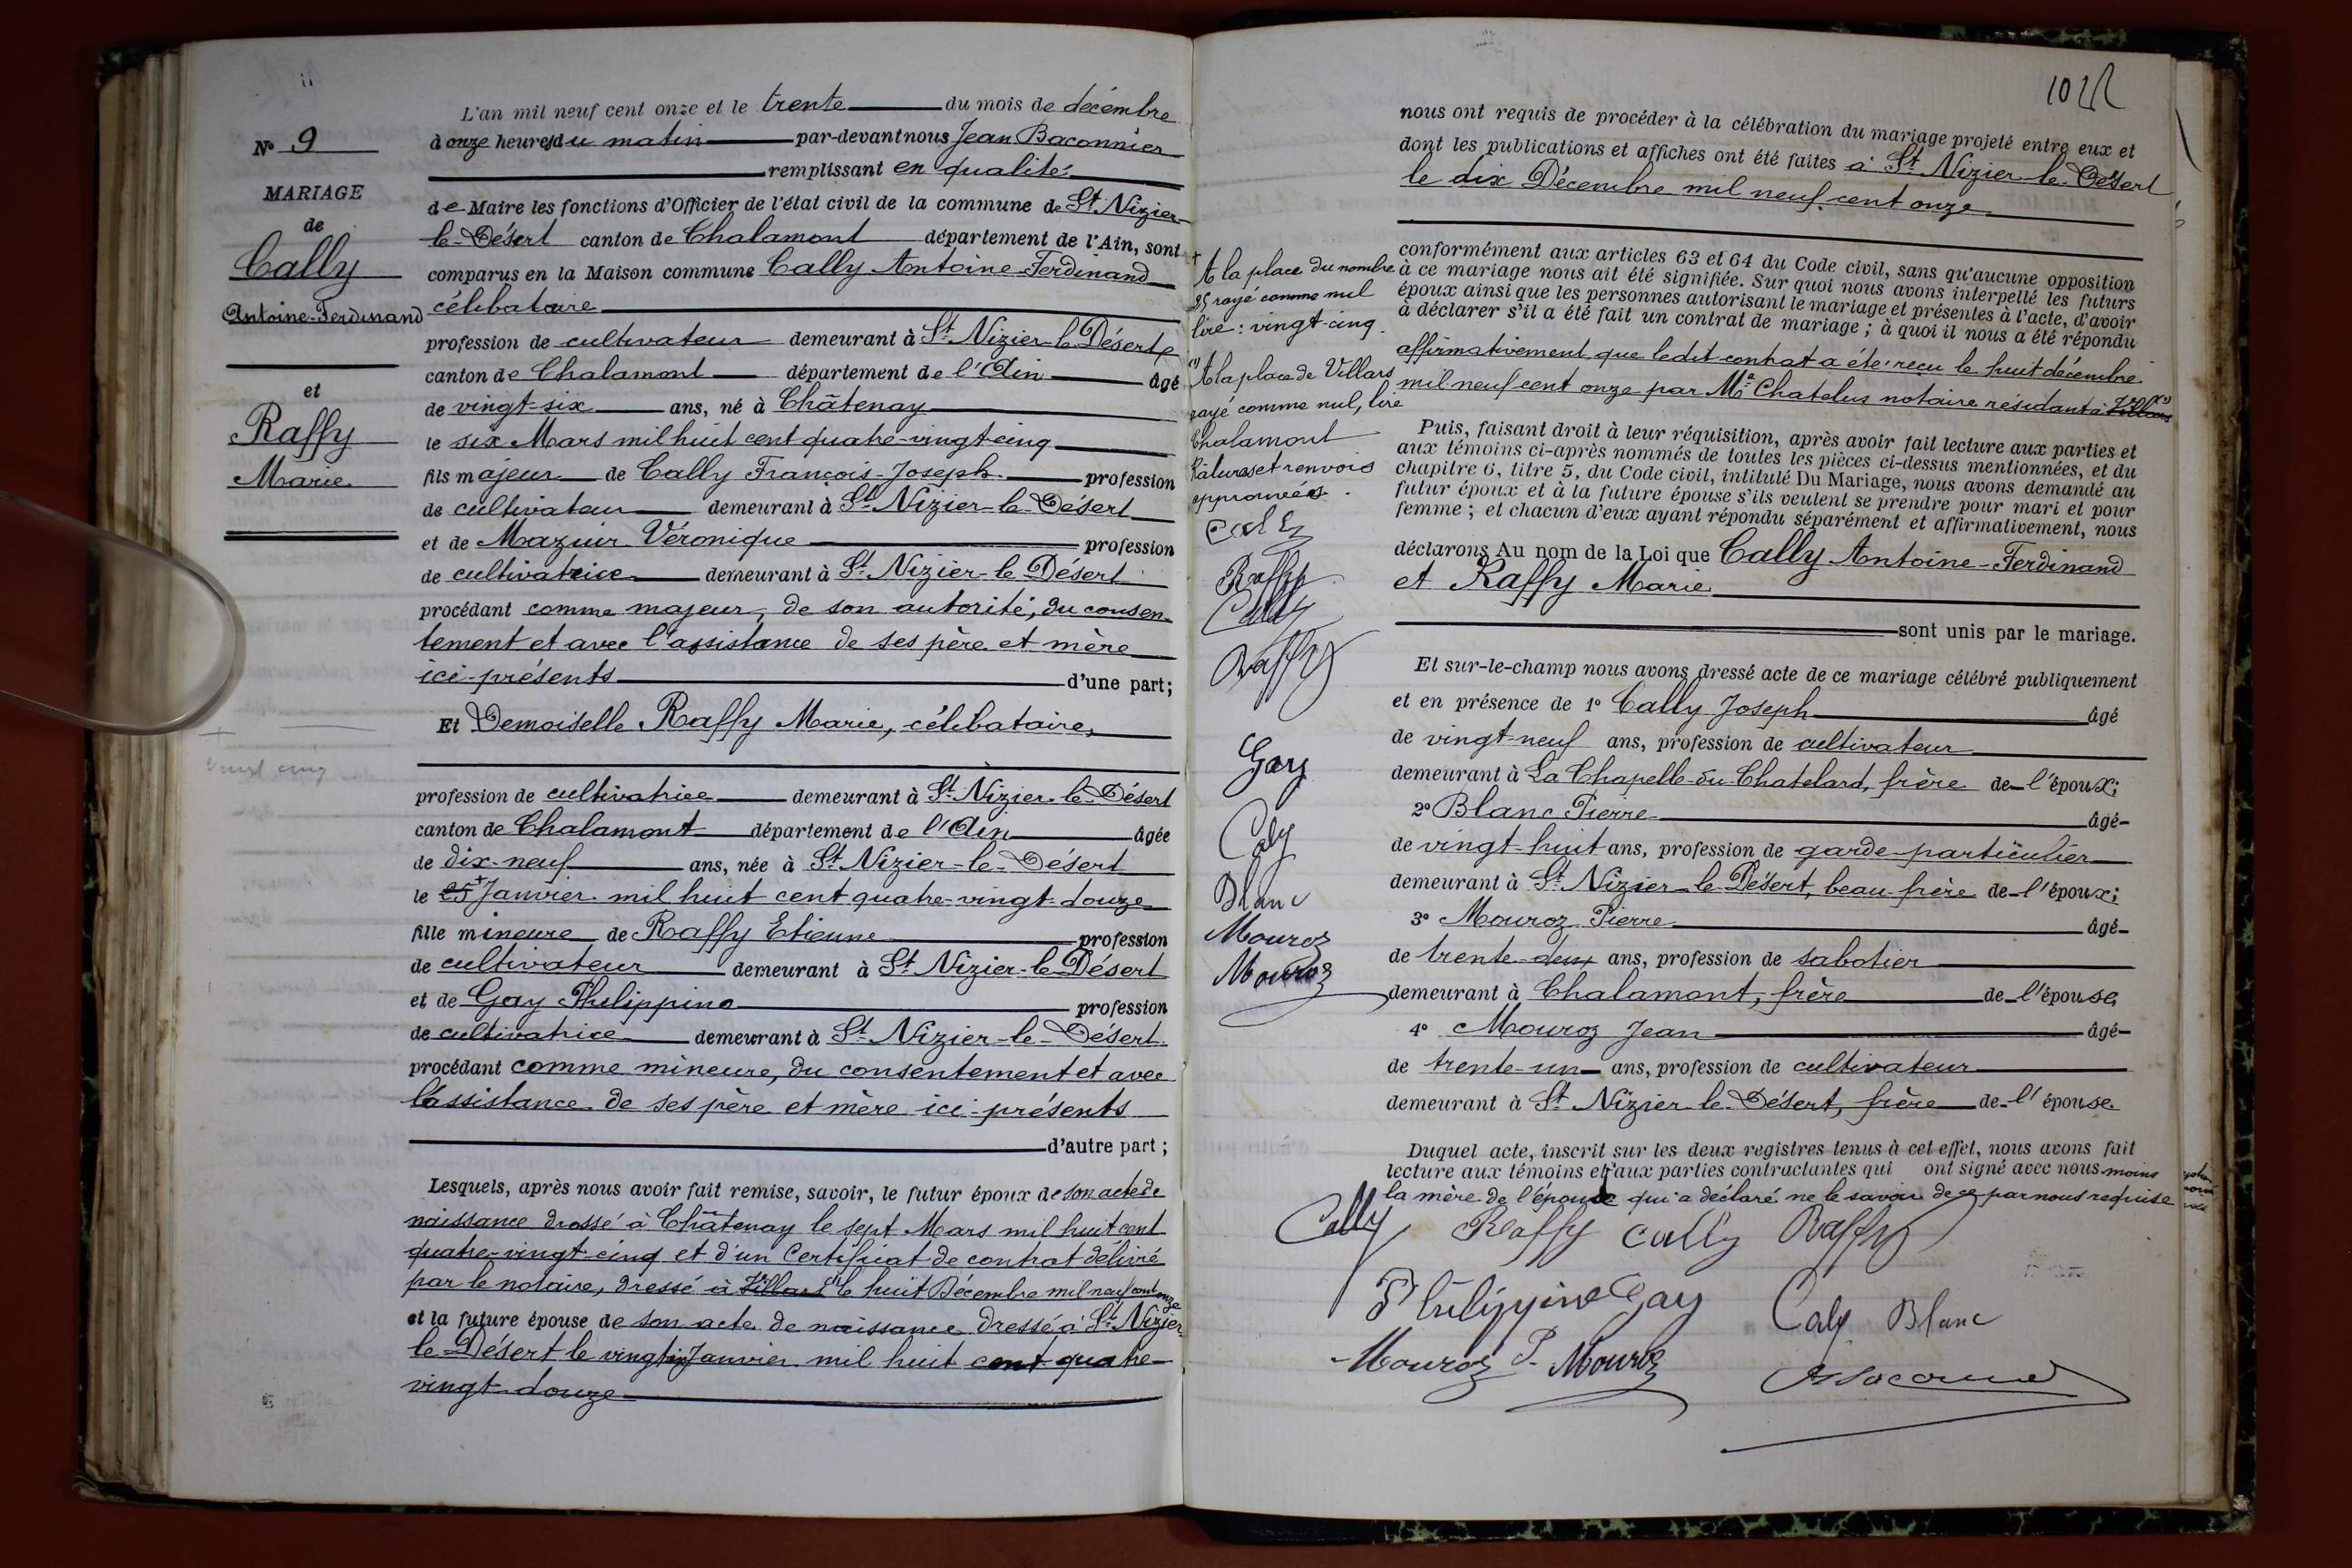 L'an mil neuf cent onze et le trente du mois de décembre
à onze heures du matin par-devant nous Jean Baconnier
remplissant en qualité
de Maire les fonctions d'Officier de l'état civil de la commune de St Nizier-
le-Désert canton de Chalamont département de l'Ain, sont
comparus en la Maison commune Cally Antoine-Ferdinand
célibataire
profession de cultivateur demeurant à St Nizier-le-Désert
canton de Chalamont département de l'Ain âgé
de vingt-six ans, né à Châtenay
le six Mars mil huit cent quatre-vingt-cinq
fils majeur de Cally François-Joseph profession
de cultivateur demeurant à St Nizier-le-Désert
et de Mazuir Véronique profession
de cultivatrice demeurant à St Nizier-le-Désert
procédant comme majeur, de son autorité, du consen-
tement et avec l'assistance de ses père et mère
ici-présents d'une part;
Et Demoiselle Raffy Marie, célibataire,
profession de cultivatrice demeurant à St Nizier-le-Désert
canton de Chalamont département de l'Ain âgée
de dix-neuf ans, née à St Nizier-le-Désert
le 25 + Janvier mil huit cent quatre-vingt-douze
fille mineure de Raffy Etienne profession
de cultivateur demeurant à St Nizier-le-Désert
et de Gay Philippine profession
de cultivatrice demeurant à St Nizier-le-Désert
procédant comme mineure, du consentement et avec
l'assistance de ses père et mère ici-présents
d'autre part;
Lesquels, après nous avoir fait remise, savoir, le futur époux de son acte de
naissance dressé à Châtenay le sept Mars mil huit cent
quatre-vingt-cinq et d'un Certificat de contrat délivré
par le notaire, dressé à Villars (1) le huit Décembre mil neuf cent onze
et la future épouse de son acte de naissance dressé à St Nizier-
le-Désert le vingt-six Janvier mil huit cent quatre-
vingt-douze
No 9
MARIAGE
de
Cally
Antoine-Ferdinand
et
Raffy
Marie
+
vingt cinq
10
nous ont requis de procéder à la célébration du mariage projeté entre eux et
dont les publications et affiches ont été faites à St Nizier-le-Désert
le dix Décembre mil neuf cent onze
conformément aux articles 63 et 64 du Code civil, sans qu'aucune opposition
à ce mariage nous ait été signifiée. Sur quoi nous avons interpellé les futurs
époux ainsi que les personnes autorisant le mariage et présentes à l'acte, d'avoir
à déclarer s'il a été fait un contrat de mariage; à quoi il nous a été répondu
affirmativement que ledit contrat a été reçu le huit décembre
mil neuf cent onze par Me Chatelus notaire résidant à Villars (1)
Puis, faisant droit à leur réquisition, après avoir fait lecture aux parties et
aux témoins ci-après nommés de toutes les pièces ci-dessus mentionnées, et du
chapitre 6, titre 5, du Code civil, intitulé Du Mariage, nous avons demandé au
futur époux et à la future épouse s'ils veulent se prendre pour mari et pour
femme; et chacun d'eux ayant répondu séparément et affirmativement, nous
déclarons Au nom de la Loi que Cally Antoine-Ferdinand
et Raffy Marie
sont unis par le mariage.
Et sur-le-champ nous avons dressé acte de ce mariage célébré publiquement
et en présence de 1º Cally Joseph âgé
de vingt-neuf ans, profession de cultivateur
demeurant à La Chapelle-du-Chatelard, frère de l'époux;
2º Blanc Pierre âgé
de vingt-huit ans, profession de garde-particulier
demeurant à St Nizier-le-Désert, beau-frère de l'époux;
3º Mouroz Pierre âgé
de trente-deux ans, profession de sabotier
demeurant à Chalamont, frère de l'épouse
4º Mouroz Jean âgé
de trente-un ans, profession de cultivateur
demeurant à St Nizier-le-Désert, frère de l'épouse
Duquel acte, inscrit sur les deux registres tenus à cet effet, nous avons fait
lecture aux témoins et aux parties contractantes qui ont signé avec nous moins
la mère de l'époux qui a déclaré ne le savoir de ce par nous requise
Cally Raffy Cally Raffy
Philippine Gay Caly Blanc
Mouroz P. Mouroz
+ A la place du nombre
25 rayé comme nul
lire: vingt-cinq.
(1) A la place de Villars
rayé comme nul, lire
Chalamont
Ratures et renvois
approuvés.
Raffy
Cally
Raffy
Gay
Caly
Blanc
Mouroz
Mouroz